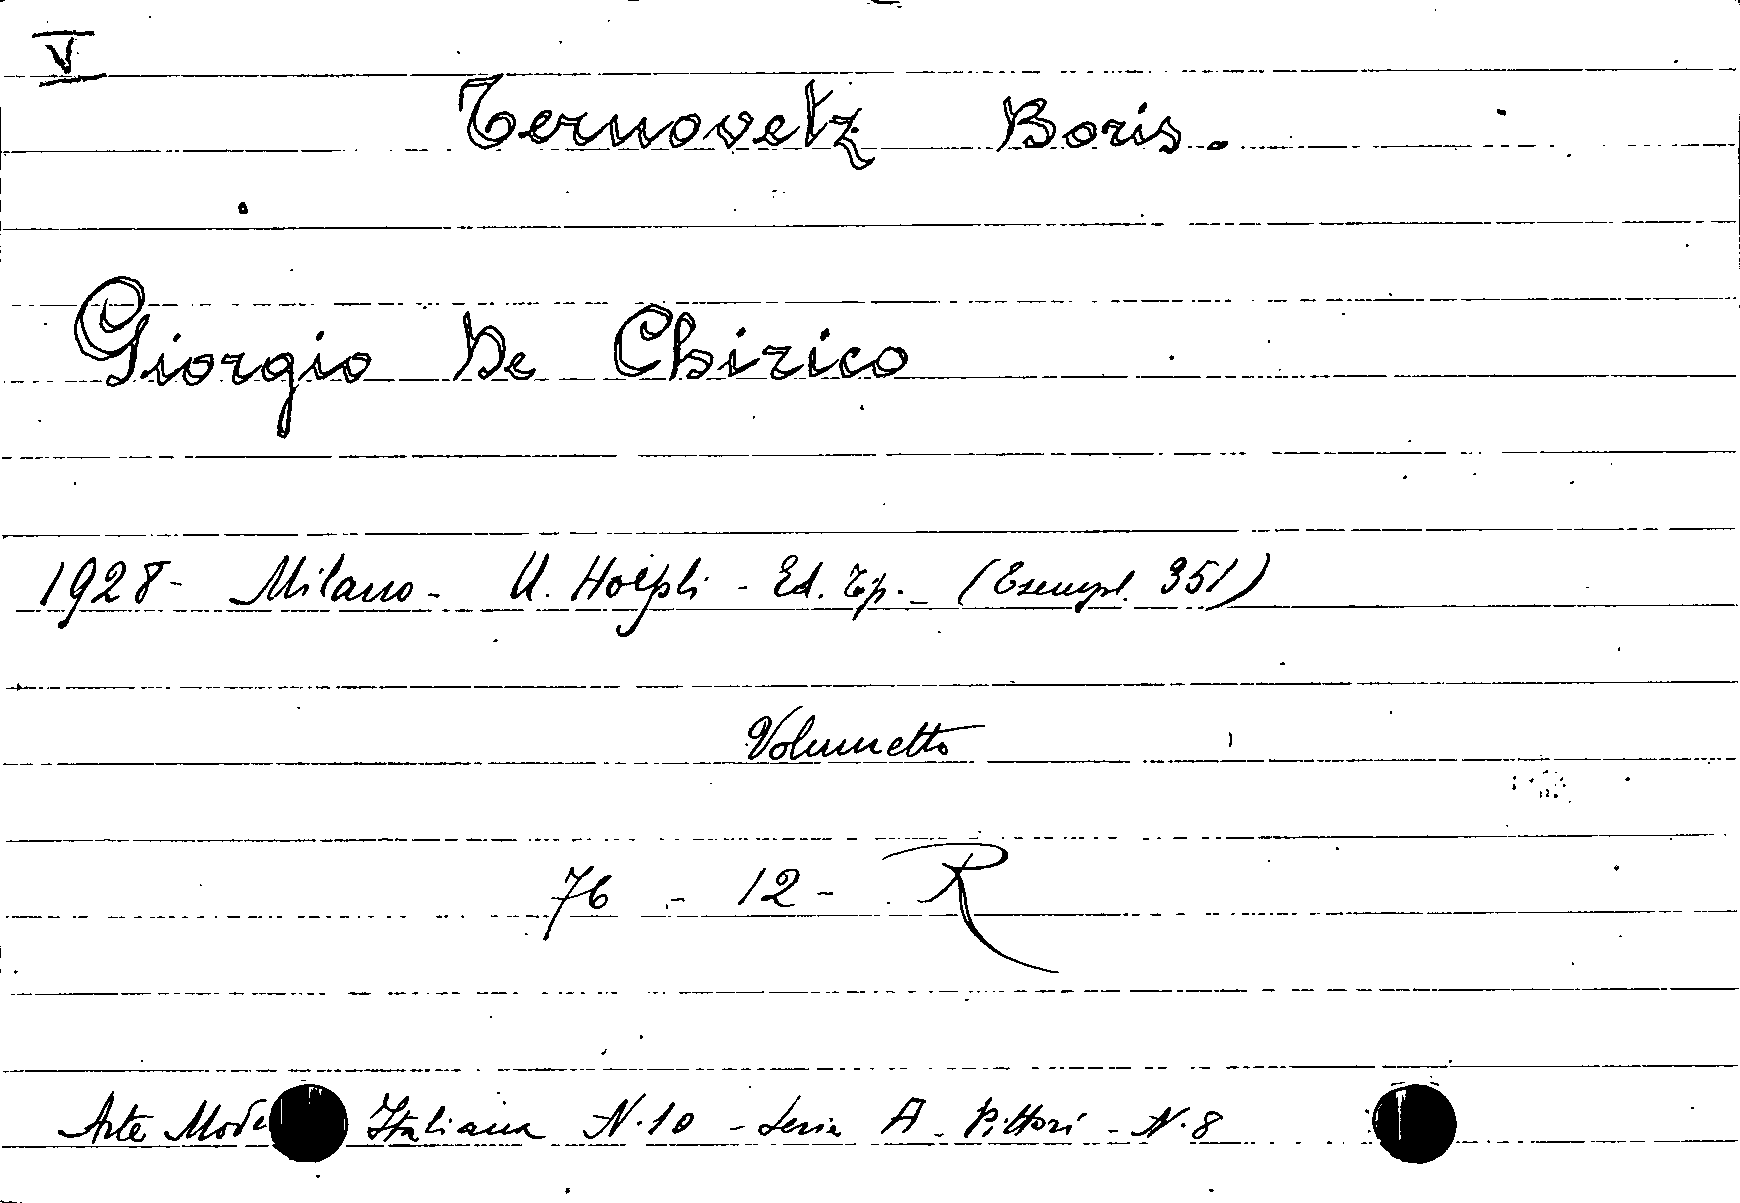 V
Ternovetz Boris.
Giorgio De Chirico
1928- Milano- U. Hoepli - Ed. Tip.- (Esempl. 351)
Volumetto
76 - 12 - R
Arte Mode Italiana N.10 - Serie A - Pittori - N.8